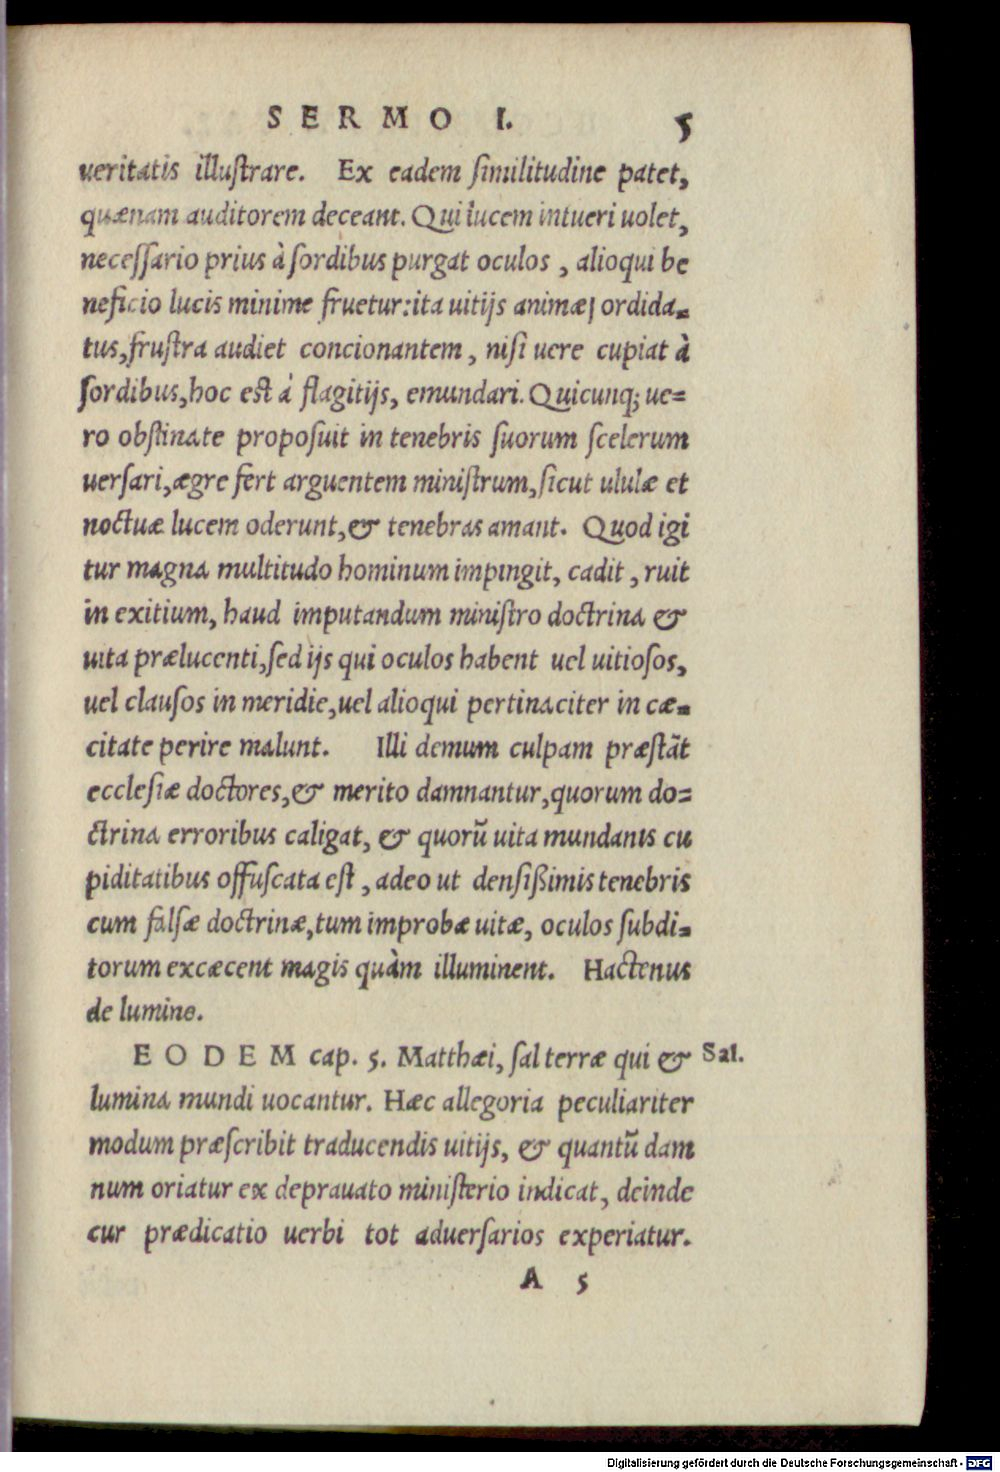 SERMO I. 5
ueritatis illuſtrare. Ex eadem ſimilitudine patet,
quænam auditorem deceant. Qui lucem intueri uolet,
neceſſario prius à ſordibus purgat oculos, alioqui be
neficio lucis minime fruetur: ita uitijs animæ ſordida-
tus, fruſtra audiet concionantem, niſi uere cupiat à
ſordibus, hoc eſt à flagitijs, emundari. Quicunq; ue-
ro obſtinate propoſuit in tenebris ſuorum ſcelerum
uerſari, ægre fert arguentem miniſtrum, ſicut ululæ et
noctuæ lucem oderunt, & tenebras amant. Quod igi
tur magna multitudo hominum impingit, cadit, ruit
in exitium, haud imputandum miniſtro doctrina &
uita prælucenti, ſed ijs qui oculos habent uel uitioſos,
uel clauſos in meridie, uel alioqui pertinaciter in cæ-
citate perire malunt. Illi demum culpam præſtāt
eccleſiæ doctores, & merito damnantur, quorum do-
ctrina erroribus caligat, & quorū uita mundanis cu
piditatibus offuſcata eſt, adeo ut denſißimis tenebris
cum falſæ doctrinæ, tum improbæ uitæ, oculos ſubdi-
torum excæcent magis quàm illuminent. Hactenus
de lumine.
EODEM cap. 5. Matthæi, ſal terræ qui & Sal.
lumina mundi uocantur. Hæc allegoria peculiariter
modum præſcribit traducendis uitijs, & quantū dam
num oriatur ex deprauato miniſterio indicat, deinde
cur prædicatio uerbi tot aduerſarios experiatur.
A 5
Digitalisierung gefördert durch die Deutsche Forschungsgemeinschaft - DFG